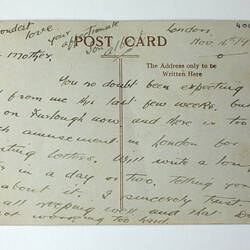 fondest love
your affectionate
son Albert
London
Nov 16th 19
400
POST CARD
The Address only to be
Written Here
Mother,
You no doubt been expecting
from me this last few weeks, but
on Furlough now and there is too
much amusement in London for
writing letters. Will write a long
in a day or two, telling you
about it. I sincerely trust
all keeping well and that D
not working too hard.